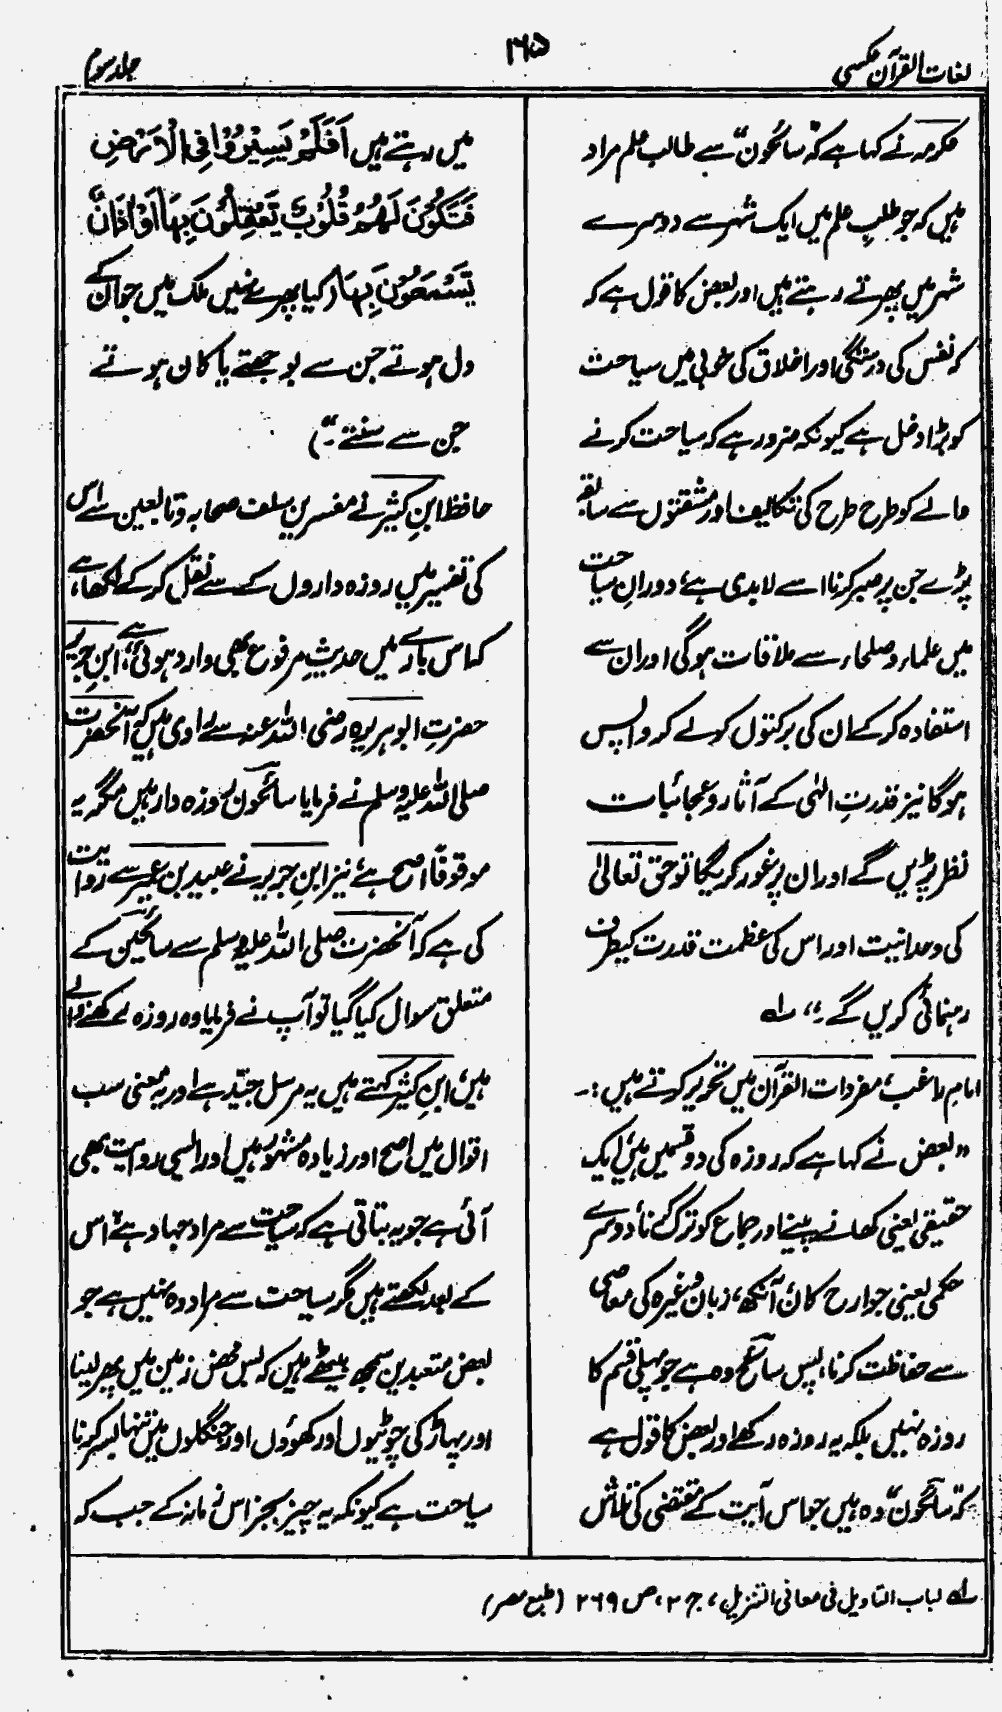 لغات القرآن عکسی
۲۶۵
جلد سوم
عکرمہ نے کہا ہے کہ "سائحون" سے طالب علم مراد
ہیں کہ جو طلبِ علم میں ایک شہر سے دوسرے
شہر میں پھرتے رہتے ہیں اور بعض کا قول ہے کہ
کہ نفس کی درستگی اور اخلاق کی خوبی میں سیاحت
کو بڑا دخل ہے کیونکہ ضرور ہے کہ سیاحت کرنے
والے کو طرح طرح کی تکالیف اور مشقتوں سے سابقہ
پڑے جن پر صبر کرنا اسے لابدی ہے، دورانِ سیاحت
میں علماء و صلحاء سے ملاقات ہوگی اور ان سے
استفادہ کرکے ان کی برکتوں کو لے کر واپس
ہوگا نیز قدرتِ الٰہی کے آثار و عجائبات
نظر پڑیں گے اور ان پر غور کریگا تو حق تعالیٰ
کی وحدانیت اور اس کی عظمت قدرت کیطرف
رہنمائی کریں گے۔" لہ
امام راغب، مفردات القرآن میں تحریر کرتے ہیں :۔
"بعض نے کہا ہے کہ روزہ کی دو قسمیں ہیں، ایک
حقیقی یعنی کھانے پینے اور جماع کو ترک کرنا، دوسرے
حکمی یعنی جوارح کان، آنکھ، زبان وغیرہ کی معاصی
سے حفاظت کرنا، پس سائح وہ ہے جو پہلی قسم کا
روزہ نہیں بلکہ یہ روزہ رکھے اور بعض کا قول ہے
کہ "سائحون" وہ ہیں جو اس آیت کے مقتضی کی تلاش
میں رہتے ہیں اَفَلَمْ يَسِيْرُوْا فِي الْاَرْضِ
فَتَكُوْنَ لَهُمْ قُلُوْبٌ يَّعْقِلُوْنَ بِهَا اَوْ اٰذَانٌ
يَّسْمَعُوْنَ بِهَا (کیا پھرے نہیں ملک میں جو ان کے
دل ہوتے جن سے بوجھتے یا کان ہوتے
جن سے سنتے۔")
حافظ ابنِ کثیر نے مفسرینِ سلف صحابہ و تابعین سے اس
کی تفسیر میں روزہ داروں کے سے نقل کرکے لکھا ہے،
کہ اس بارے میں حدیثِ مرفوع بھی وارد ہوئی ہے، ابنِ جریر
حضرتِ ابوہریرہ رضی اللہ عنہ سے راوی ہیں کہ آنحضرت
صلی اللہ علیہ وسلم نے فرمایا سائحون روزہ دار ہیں مگر یہ
موقوفاً اصح ہے، نیز ابنِ جریر نے عبید بن عمیر سے روایت
کی ہے کہ آنحضرت صلی اللہ علیہ وسلم سے سائحین کے
متعلق سوال کیا گیا تو آپ نے فرمایا وہ روزہ رکھنے والے
ہیں، ابنِ کثیر کہتے ہیں یہ مرسل جیّد ہے اور یہ معنی سب
اقوال میں اصح اور زیادہ مشہور ہیں اور ایسی روایت بھی
آئی ہے جو یہ بتاتی ہے کہ سیاحت سے مراد جہاد ہے، اس
کے بعد لکھتے ہیں مگر سیاحت سے مراد وہ نہیں ہے جو
بعض متعبدین سمجھ بیٹھے ہیں کہ بس محض زمین میں پھر لینا
اور پہاڑ کی چوٹیوں اور کھوؤں اور جنگلوں میں تنہا بسر کرنا
سیاحت ہے کیونکہ یہ چیز بجز اس زمانہ کے جب کہ
لہ لباب التاویل فی معانی التنزیل، ج ۲، ص ۲۶۹ (طبع مصر)